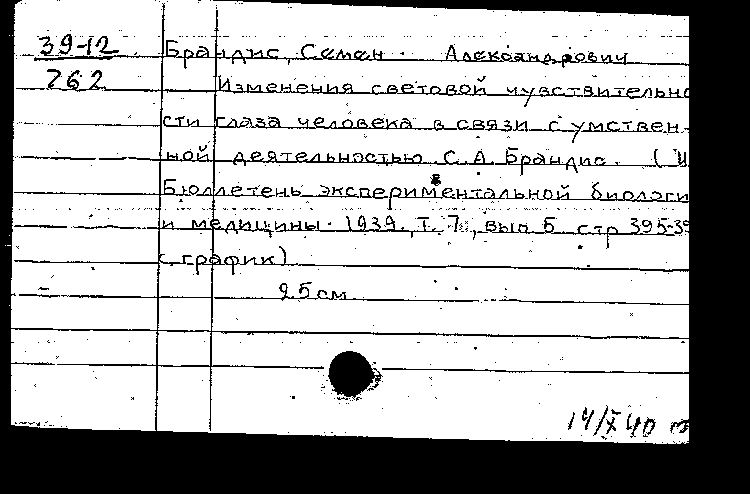 39-12
262
Брандис, Семен Александрович
Изменения световой чувствительно
сти глаза человека в связи с умствен-
ной деятельностью С. А. Брандис. (И
Бюллетень экспериментальной биологи
и медицины. 1939., Т. 7, вып 5 стр 395-39
с график)
25 см
14/X 40